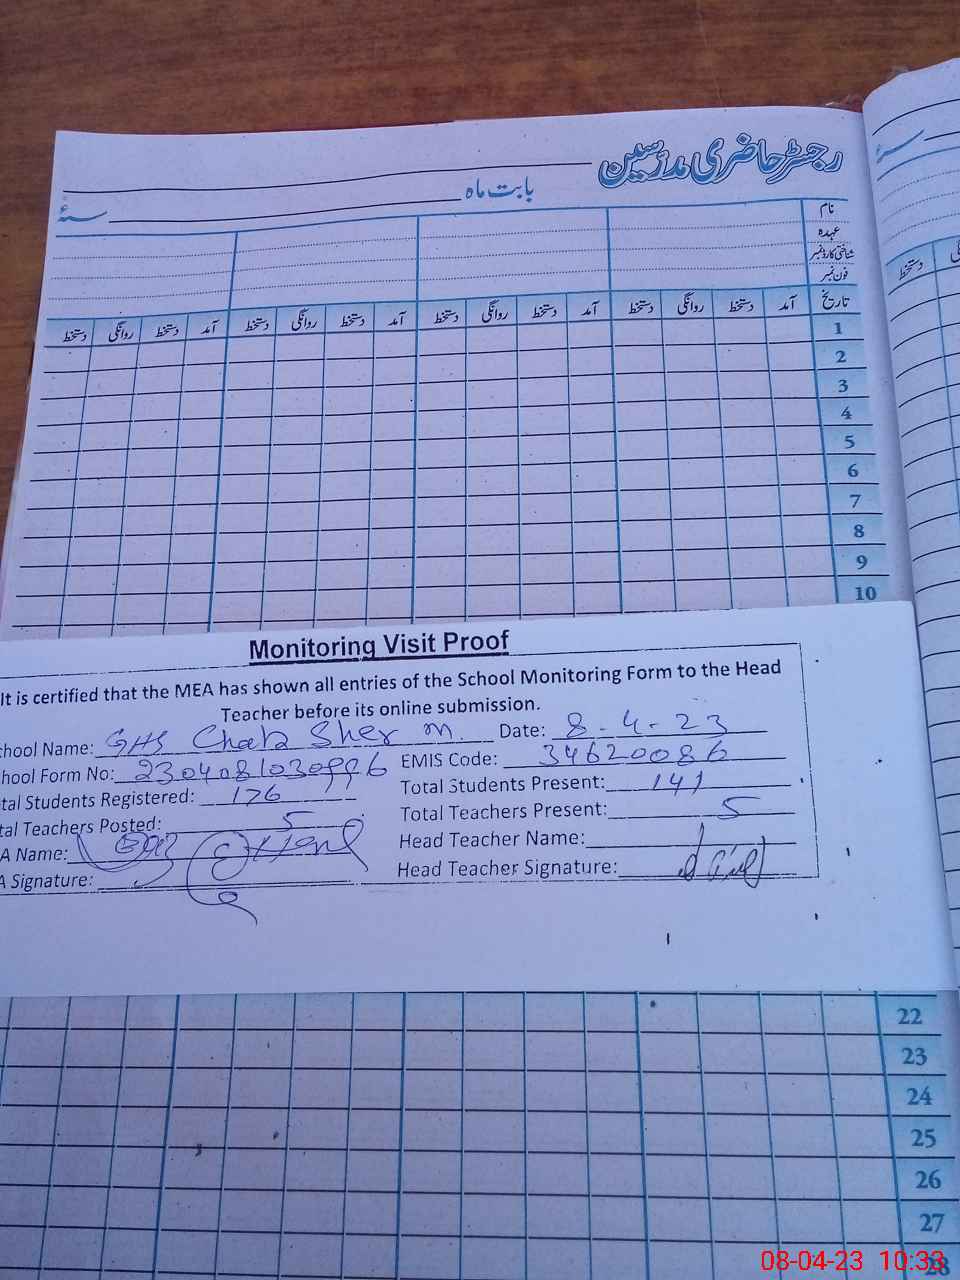 رجسٹر حاضری مدرسین
بابت ماہ
سنہء
نام
عہدہ
شناختی کارڈ نمبر
فون نمبر
تاریخ آمد دستخط روانگی دستخط آمد دستخط روانگی دستخط آمد دستخط روانگی دستخط آمد دستخط روانگی دستخط
1
2
3
4
5
6
7
8
9
10
Monitoring Visit Proof
It is certified that the MEA has shown all entries of the School Monitoring Form to the Head
Teacher before its online submission.
chool Name: GHS Chak Sher M. Date: 8-4-23
chool Form No: EMIS Code: 34620086
tal Students Registered: 176 Total Students Present: 141
tal Teachers Posted: 5 Total Teachers Present: 5
A Name: Head Teacher Name:
A Signature: Head Teacher Signature:
22
23
24
25
26
27
28
08-04-23 10:33
دستخط